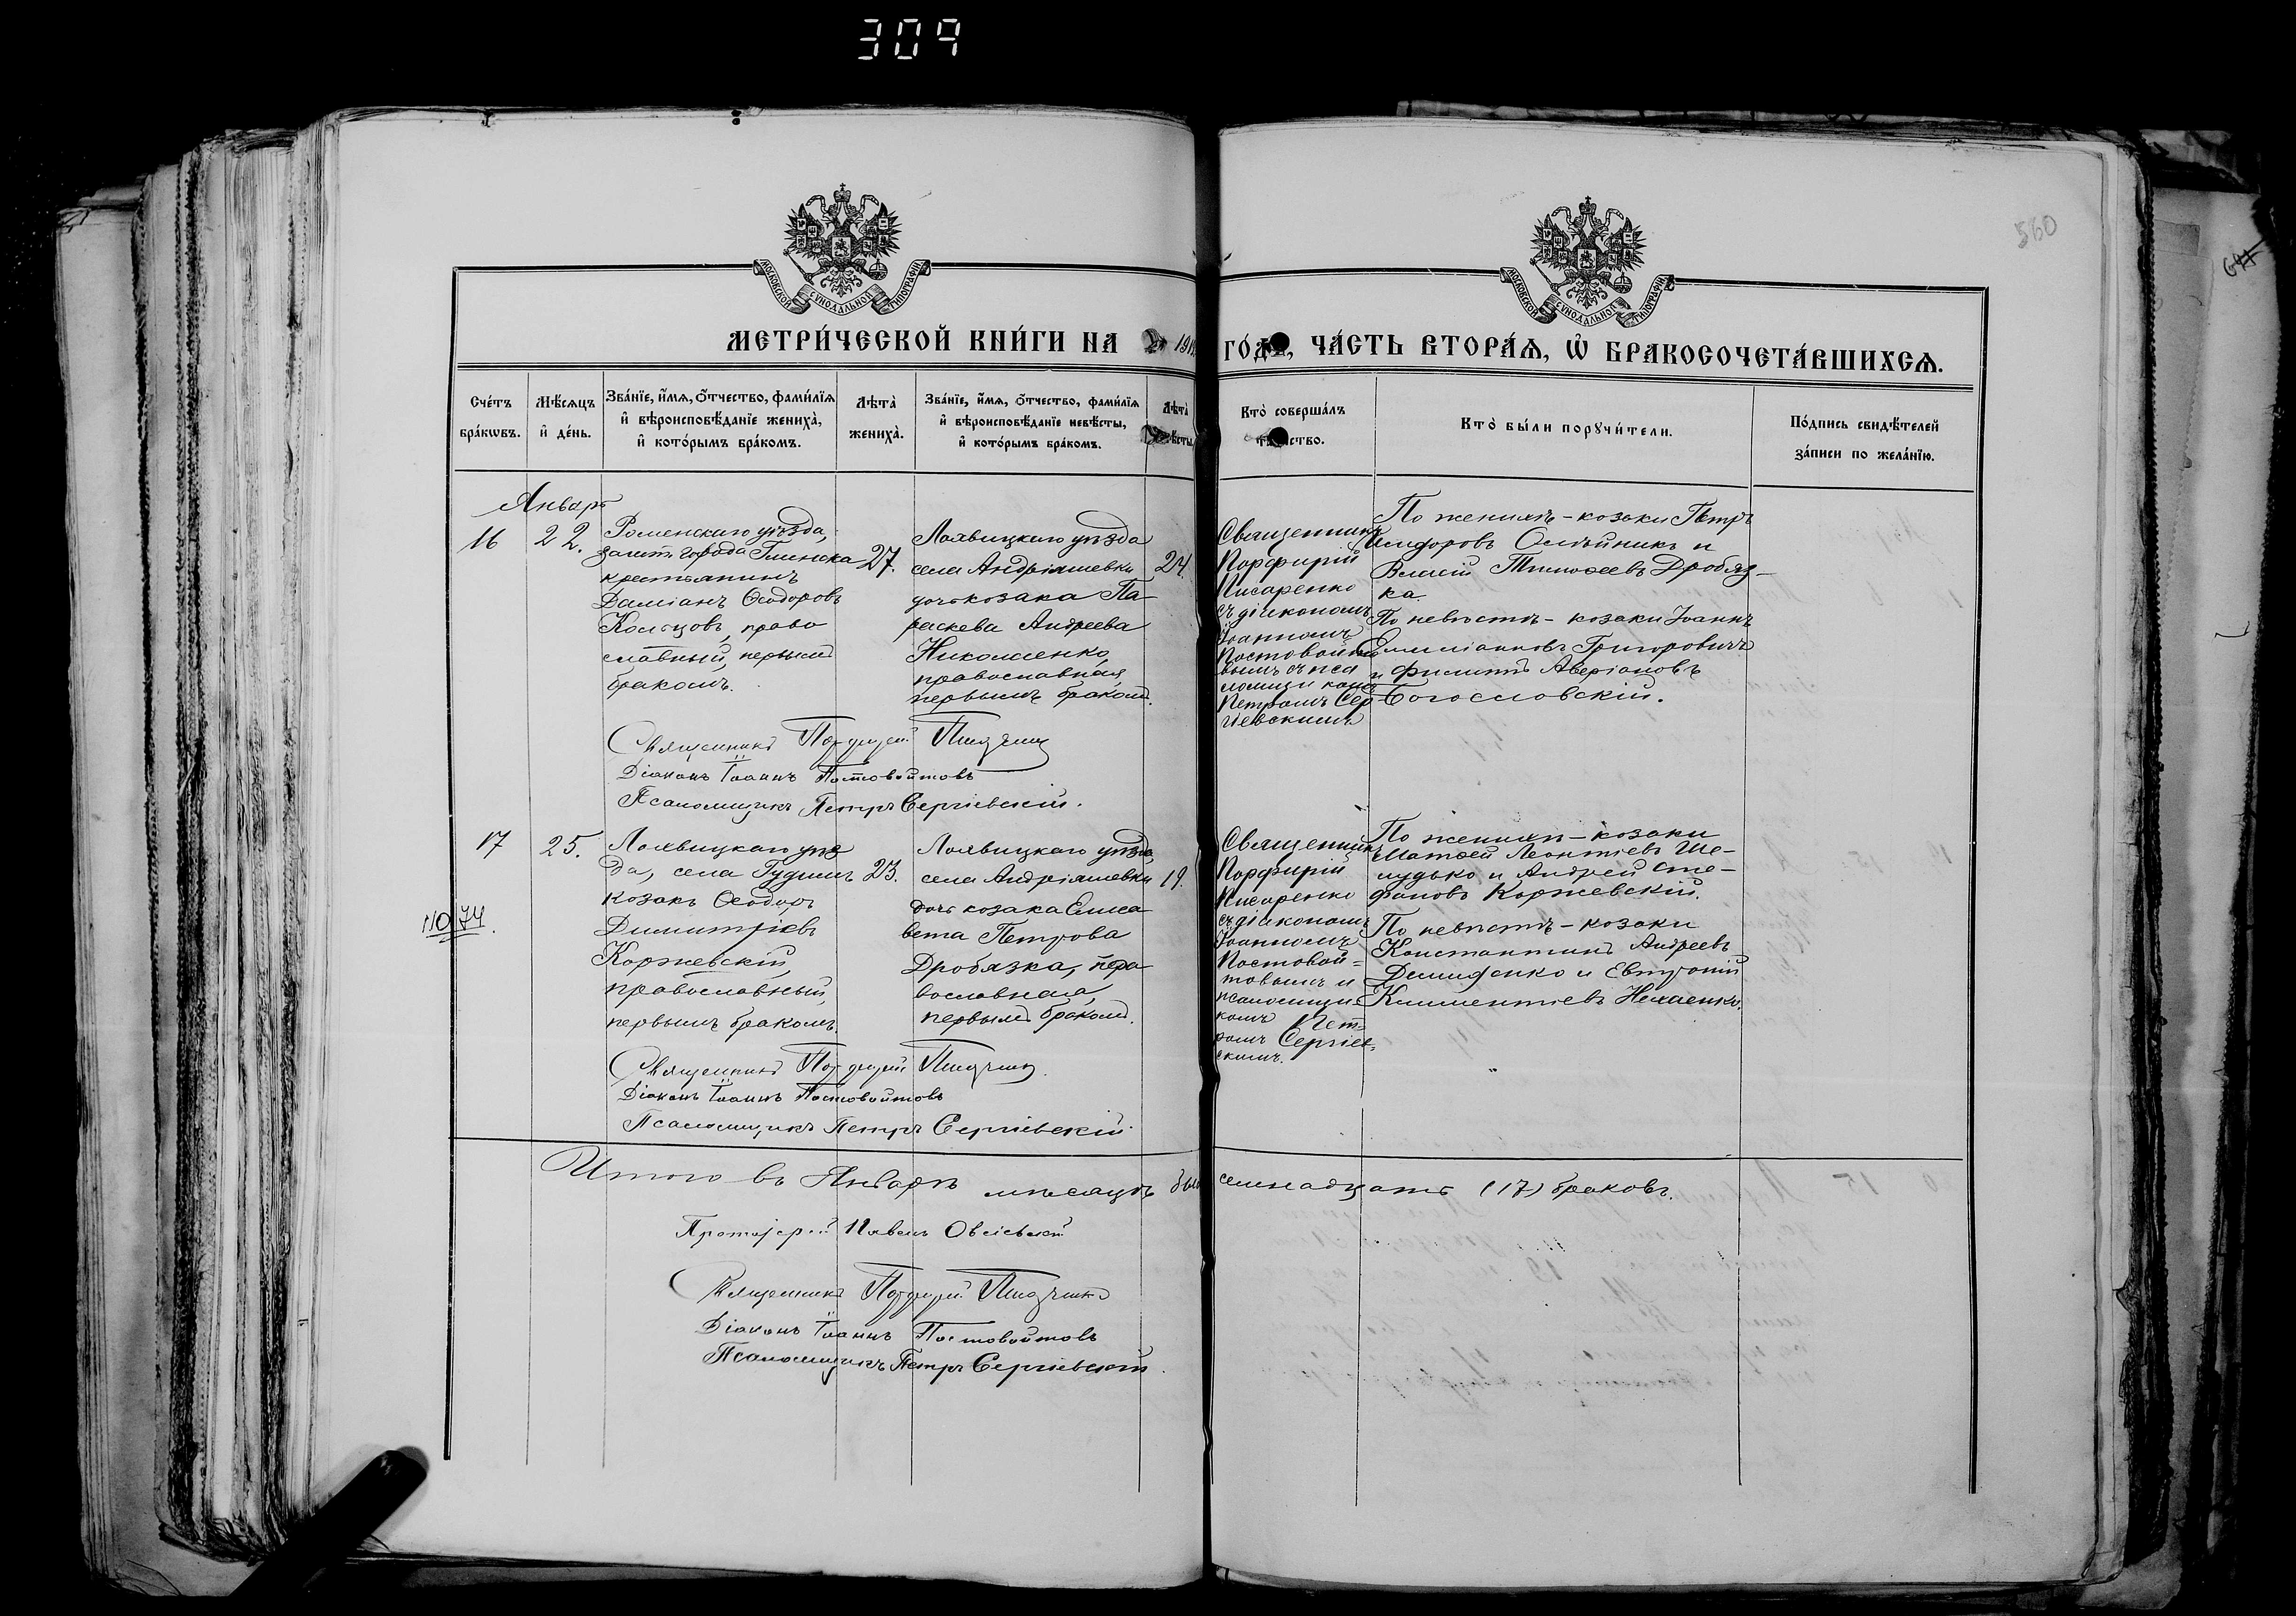 309
560
МОСКОВСКОЙ СѴНОДАЛЬНОЙ ТИПОГРАФІИ
МОСКОВСКОЙ СѴНОДАЛЬНОЙ ТИПОГРАФІИ
МЕТРИ́ЧЕСКОЙ КНИ́ГИ НА ЧА́СТЬ ВТОРА́Ѧ, Ѽ БРАКОСОЧЕТА́ВШИХСѦ.
Сче́тъ бра́кѡвъ.
Мѣ́сѧцъ и҆ де́нь.
Зва́нїе, и҆́мѧ, ѻ҆́тчество, фами́лїѧ и҆ вѣроисповѣ́данїе жениха̀, и҆ кото́рымъ бра́комъ.
Лѣта̀ жениха̀.
Зва́нїе, и҆́мѧ, ѻ҆́тчество, фами́лїѧ и҆ вѣроисповѣ́данїе невѣ́сты, и҆ кото́рымъ бра́комъ.
Лѣта̀
Кто̀ соверша́лъ
Кто̀ бы́ли порꙋчи́тели.
По́дпись свидѣ́телей за́писи по жела́нїю.
Январь
16
22.
Роменскаго уѣзда,
города Глинска
крестьянинъ
Даміанъ Ѳеодоровъ
Кольцовъ, право
славный, первымъ
бракомъ.
27.
Лохвицкаго уѣзда
села Андріяшевки
дочь козака Па
раскева Андреева
Николаенко,
православная,
первымъ бракомъ.
24.
Священникъ
Порфирій
Писаренко
съ діакономъ
Іоанномъ
Петромъ Сер
гіевскимъ
По женихѣ - козаки Петръ
Исидоровъ Олѣйникъ и
Власій Тимоѳеевъ Дробяз-
ка.
По невѣстѣ - козаки Іоаннъ
Емиліановъ Григоровичъ
и Филиппъ Аверіановъ
Богословскій.
Священникъ Порфирій Писаренко
Діаконъ Іоаннъ Постовойтовъ
Псаломщикъ Петръ Сергіевскій.
17
25.
Лохвицкаго уѣз
да, села Гудимъ
козакъ Ѳеодоръ
Димитріевъ
Коржевскій,
православный,
первымъ бракомъ.
23.
Лохвицкаго уѣзда,
села Андріяшевки
дочь козака Елиса
вета Петрова
Дробязка, пра
вославная,
первымъ бракомъ.
19.
Священникъ
Порфирій
Писаренко
съ діакономъ
Іоанномъ
Постовой=
товымъ и
псаломщи=
комъ Пет=
ромъ Сергіев=
скимъ.
По женихѣ - козаки
Матѳей Леонтіевъ Ше-
лудько и Андрей Сте-
фановъ Коржевскій.
По невѣстѣ - козаки
Константинъ Андреевъ
Демиденко и Евтихій
Климентіевъ Нехаенко.
Священникъ Порфирій Писаренко
Діаконъ Іоаннъ Постовойтовъ
Псаломщикъ Петръ Сергіевскій
Итого въ Январѣ мѣсяцѣ семнадцать (17) браковъ.
Протоіерей Павелъ
Священникъ Порфирій Писаренко
Діаконъ Іоаннъ Постовойтовъ
Псаломщикъ Петръ Сергіевскій.